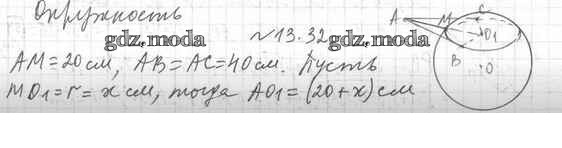 Окружность
gdz.moda
№13.32
gdz.moda
A M C O1 B O
AM=20см, AB=AC=40см. Пусть
MO1=r=x см, тогда AO1=(20+x)см